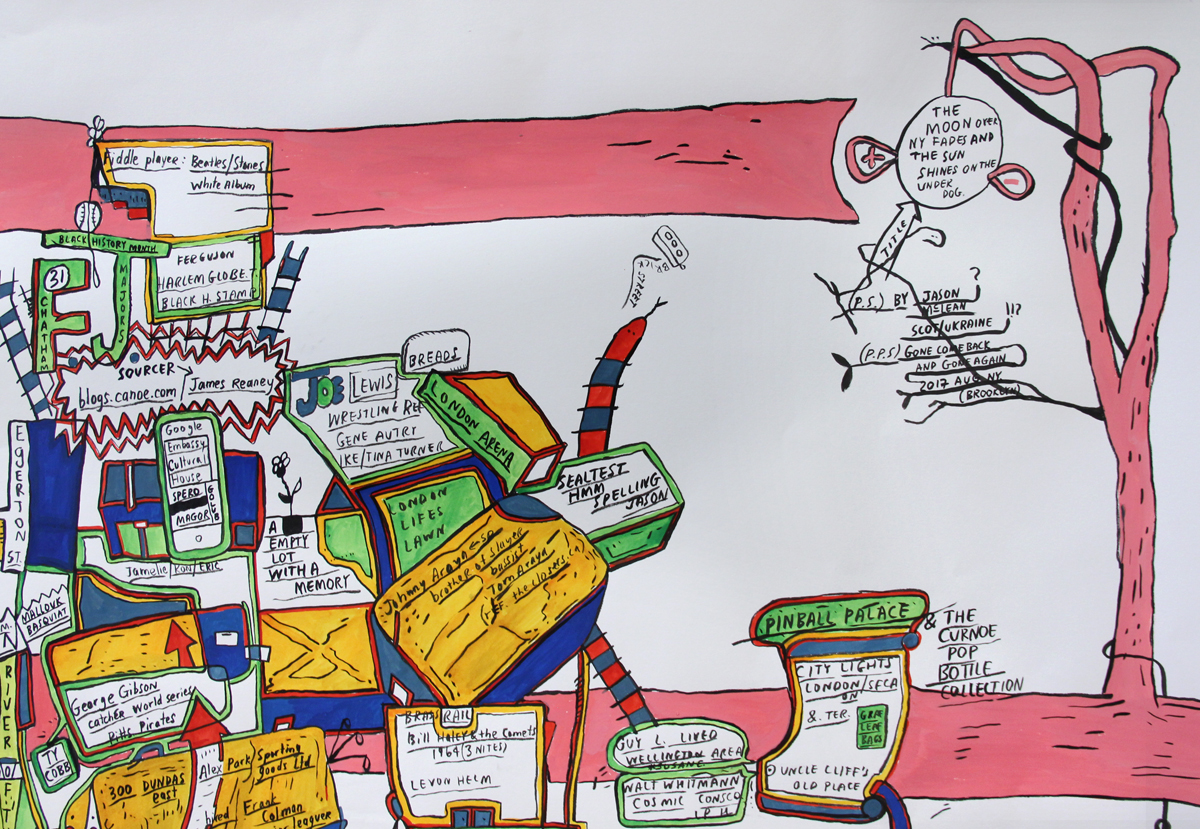 Fiddle player: Beatles/Stones
White Album
BLACK HISTORY MONTH
FERGUSON
HARLEM GLOBE.T.
BLACK H. STAMP
31
CHATHAM
FJ
MAJORS
SOURCER
blogs.canoe.com / James Reaney
THE
MOON OVER
NY FADES AND
THE SUN
SHINES ON THE
UNDER
DOG.
TITLE
(P.S.) BY JASON ?
McLEAN
SCOT/UKRAINE !!?
(P.P.S) GONE COME BACK
AND GONE AGAIN
2017 AUG NY
(BROOKLYN)
BRICK
STREET
BREADS
JOE LEWIS
WRESTLING REF
GENE AUTRY
IKE/TINA TURNER
LONDON ARENA
SEALTEST
HMM
SPELLING
JASON
LONDON
LIFES
LAWN
Johnny Araya ESP
brother of slayer
bassist
Tom Araya
REF. the closers.ca
EGERTON ST.
Google
Embassy
Cultural
House
SPERO
MAGOR
GOTB
Jamelie / RON/ERIC
A
EMPTY
LOT
WITH A
MEMORY
MALLOUK
BASQUIAT
RIVER
George Gibson
catcher World series
Pitts Pirates
TY
COBB
300 DUNDAS
east
Alex Park Sporting
goods Ltd
Frank
Colman
leaguer
BRASS RAIL
Bill Haley & the Comets
1964 (3 NITES)
LEVON HELM
GUY L. LIVED
WELLINGTON AREA
WALT WHITMANN
COSMIC CONSCO
PINBALL PALACE
& THE
CURNOE
POP
BOTTLE
COLLECTION
CITY LIGHTS
LONDON/SECA
ON
&. TER.
UNCLE CLIFF'S
OLD PLACE